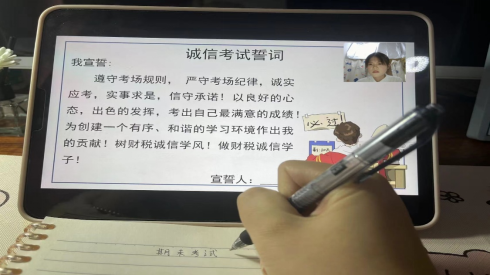 诚信考试誓词
我宣誓：
遵守考场规则， 严守考场纪律，诚实
应考，实事求是，信守承诺！以良好的心
态，出色的发挥，考出自己最满意的成绩！
为创建一个有序、和谐的学习环境作出我
的贡献！树财税诚信学风！做财税诚信学
子！
宣誓人：
必过
期末考试